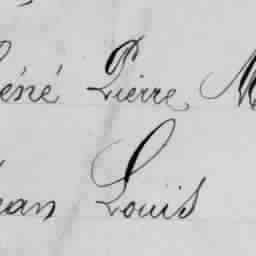 éné Pierre M
ean Louis